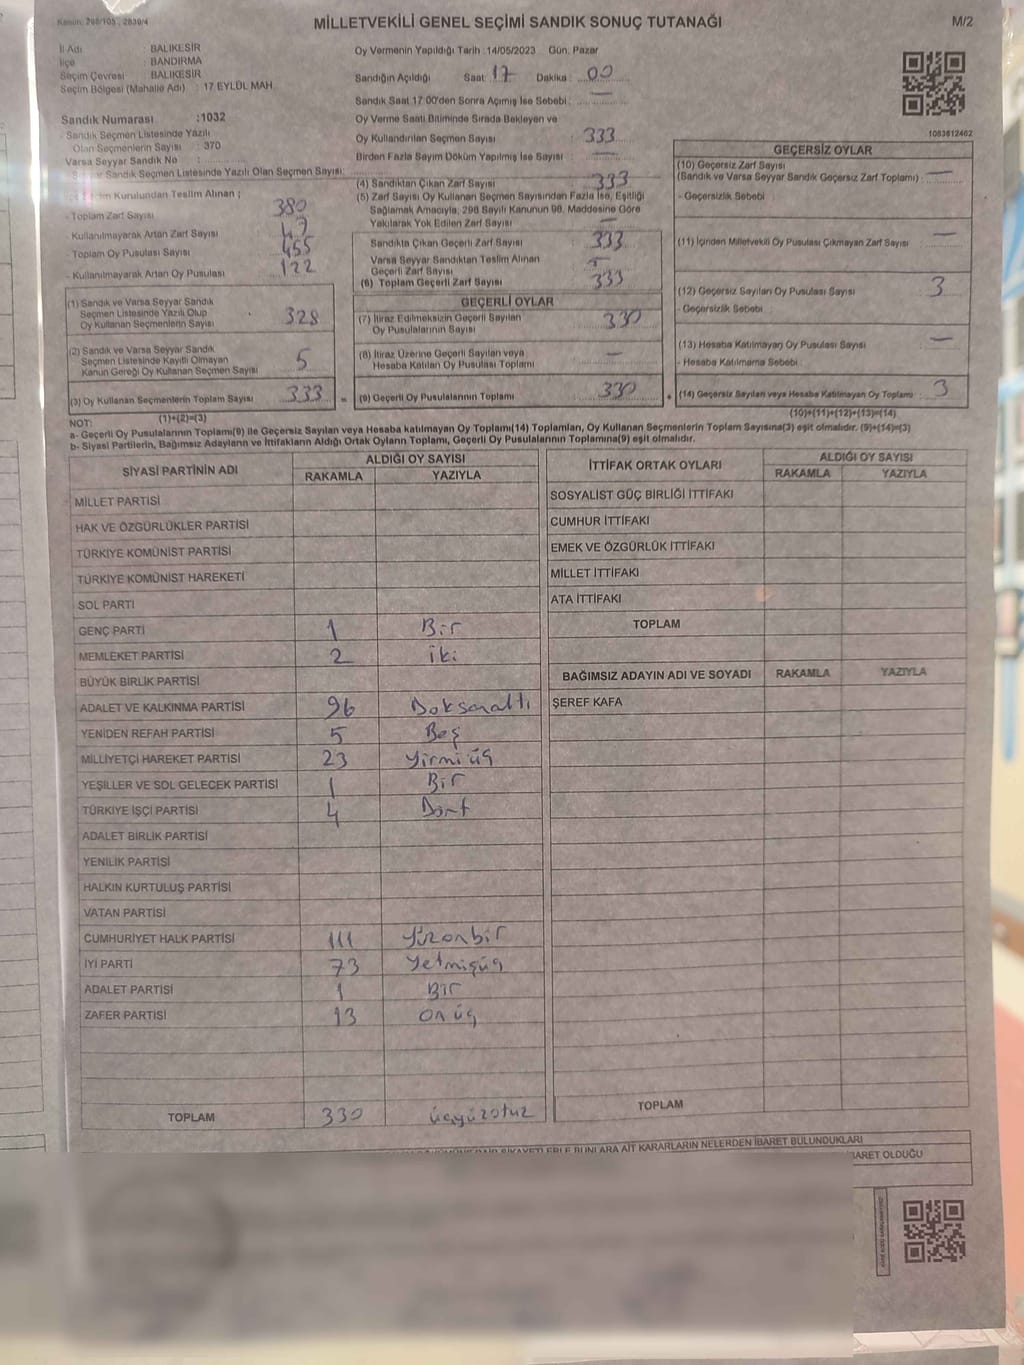 Kanun: 298/105 , 2839/4
MİLLETVEKİLİ GENEL SEÇİMİ SANDIK SONUÇ TUTANAĞI
M/2
İl Adı : BALIKESİR
İlçe : BANDIRMA
Seçim Çevresi : BALIKESİR
Seçim Bölgesi (Mahalle Adı) : 17 EYLÜL MAH.
Oy Vermenin Yapıldığı Tarih :14/05/2023 Gün: Pazar
Sandığın Açıldığı Saat: 17 Dakika : 00
Sandık Saat 17:00'den Sonra Açılmış İse Sebebi : —
Sandık Numarası :1032
- Sandık Seçmen Listesinde Yazılı
Olan Seçmenlerin Sayısı : 370
Varsa Seyyar Sandık No :
Sandık Seçmen Listesinde Yazılı Olan Seçmen Sayısı:
Kurulundan Teslim Alınan ;
- Toplam Zarf Sayısı 380
- Kullanılmayarak Artan Zarf Sayısı 47
- Toplam Oy Pusulası Sayısı 455
- Kullanılmayarak Artan Oy Pusulası 122
(1) Sandık ve Varsa Seyyar Sandık
Seçmen Listesinde Yazılı Olup
Oy Kullanan Seçmenlerin Sayısı 328
(2) Sandık ve Varsa Seyyar Sandık
Seçmen Listesinde Kayıtlı Olmayan
Kanun Gereği Oy Kullanan Seçmen Sayısı 5
(3) Oy Kullanan Seçmenlerin Toplam Sayısı 333
(1)+(2)=(3)
Oy Verme Saati Bitiminde Sırada Bekleyen ve
Oy Kullandırılan Seçmen Sayısı : 333
Birden Fazla Sayım Döküm Yapılmış İse Sayısı : —
(4) Sandıktan Çıkan Zarf Sayısı : 333
(5) Zarf Sayısı Oy Kullanan Seçmen Sayısından Fazla İse, Eşitliği
Sağlamak Amacıyla; 298 Sayılı Kanunun 98. Maddesine Göre
Yakılarak Yok Edilen Zarf Sayısı : —
Sandıkta Çıkan Geçerli Zarf Sayısı : 333
Varsa Seyyar Sandıktan Teslim Alınan
Geçerli Zarf Sayısı :
(6) Toplam Geçerli Zarf Sayısı : 333
GEÇERLİ OYLAR
(7) İtiraz Edilmeksizin Geçerli Sayılan
Oy Pusulalarının Sayısı : 330
(8) İtiraz Üzerine Geçerli Sayılan veya
Hesaba Katılan Oy Pusulası Toplamı : —
= (9) Geçerli Oy Pusulalarının Toplamı : 330
1083612462
GEÇERSİZ OYLAR
(10) Geçersiz Zarf Sayısı
(Sandık ve Varsa Seyyar Sandık Geçersiz Zarf Toplamı) : —
- Geçersizlik Sebebi :
(11) İçinden Milletvekili Oy Pusulası Çıkmayan Zarf Sayısı : —
(12) Geçersiz Sayılan Oy Pusulası Sayısı : 3
- Geçersizlik Sebebi :
(13) Hesaba Katılmayan Oy Pusulası Sayısı : —
- Hesaba Katılmama Sebebi :
+ (14) Geçersiz Sayılan veya Hesaba Katılmayan Oy Toplamı : 3
(10)+(11)+(12)+(13)=(14)
NOT:
a- Geçerli Oy Pusulalarının Toplamı(9) ile Geçersiz Sayılan veya Hesaba katılmayan Oy Toplamı(14) Toplamları, Oy Kullanan Seçmenlerin Toplam Sayısına(3) eşit olmalıdır. (9)+(14)=(3)
b- Siyasi Partilerin, Bağımsız Adayların ve İttifakların Aldığı Ortak Oyların Toplamı, Geçerli Oy Pusulalarının Toplamına(9) eşit olmalıdır.
SİYASİ PARTİNİN ADI ALDIĞI OY SAYISI
RAKAMLA YAZIYLA
MİLLET PARTİSİ
HAK VE ÖZGÜRLÜKLER PARTİSİ
TÜRKİYE KOMÜNİST PARTİSİ
TÜRKİYE KOMÜNİST HAREKETİ
SOL PARTİ
GENÇ PARTİ 1 Bir
MEMLEKET PARTİSİ 2 iki
BÜYÜK BİRLİK PARTİSİ
ADALET VE KALKINMA PARTİSİ 96 Doksanaltı
YENİDEN REFAH PARTİSİ 5 Beş
MİLLİYETÇİ HAREKET PARTİSİ 23 Yirmiüç
YEŞİLLER VE SOL GELECEK PARTİSİ 1 Bir
TÜRKİYE İŞÇİ PARTİSİ 4 Dört
ADALET BİRLİK PARTİSİ
YENİLİK PARTİSİ
HALKIN KURTULUŞ PARTİSİ
VATAN PARTİSİ
CUMHURİYET HALK PARTİSİ 111 Yüzonbir
İYİ PARTİ 73 Yetmişüç
ADALET PARTİSİ 1 Bir
ZAFER PARTİSİ 13 onüç
TOPLAM 330 üçyüzotuz
İTTİFAK ORTAK OYLARI ALDIĞI OY SAYISI
RAKAMLA YAZIYLA
SOSYALİST GÜÇ BİRLİĞİ İTTİFAKI
CUMHUR İTTİFAKI
EMEK VE ÖZGÜRLÜK İTTİFAKI
MİLLET İTTİFAKI
ATA İTTİFAKI
TOPLAM
BAĞIMSIZ ADAYIN ADI VE SOYADI RAKAMLA YAZIYLA
ŞEREF KAFA
TOPLAM
BUNLARA AİT KARARLARIN NELERDEN İBARET BULUNDUKLARI
OLDUĞU